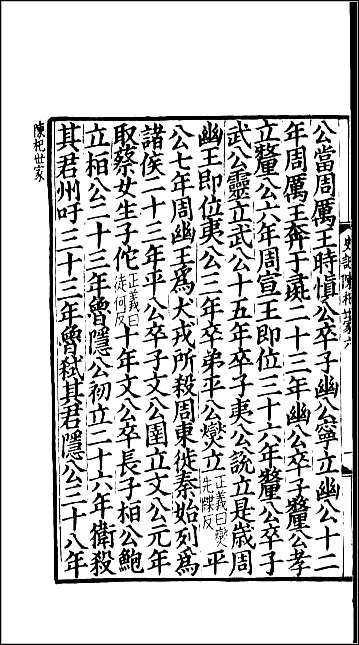 公當周厲王時慎公卒子幽公寧立幽公十二
年周厲王奔于彘二十三年幽公卒子釐公孝
立釐公六年周宣王即位三十六年釐公卒子
武公靈立武公十五年卒子夷公說立是歲周
幽王即位夷公三年卒弟平公燮立正義曰燮先牒反平
公七年周幽王爲犬戎所殺周東徙秦始列爲
諸侯二十三年平公卒子文公圉立文公元年
取蔡女生子佗正義曰徒何反十年文公卒長子桓公鮑
立桓公二十三年魯隱公初立二十六年衛殺
其君州吁三十三年魯弒其君隱公三十八年
陳杞世家